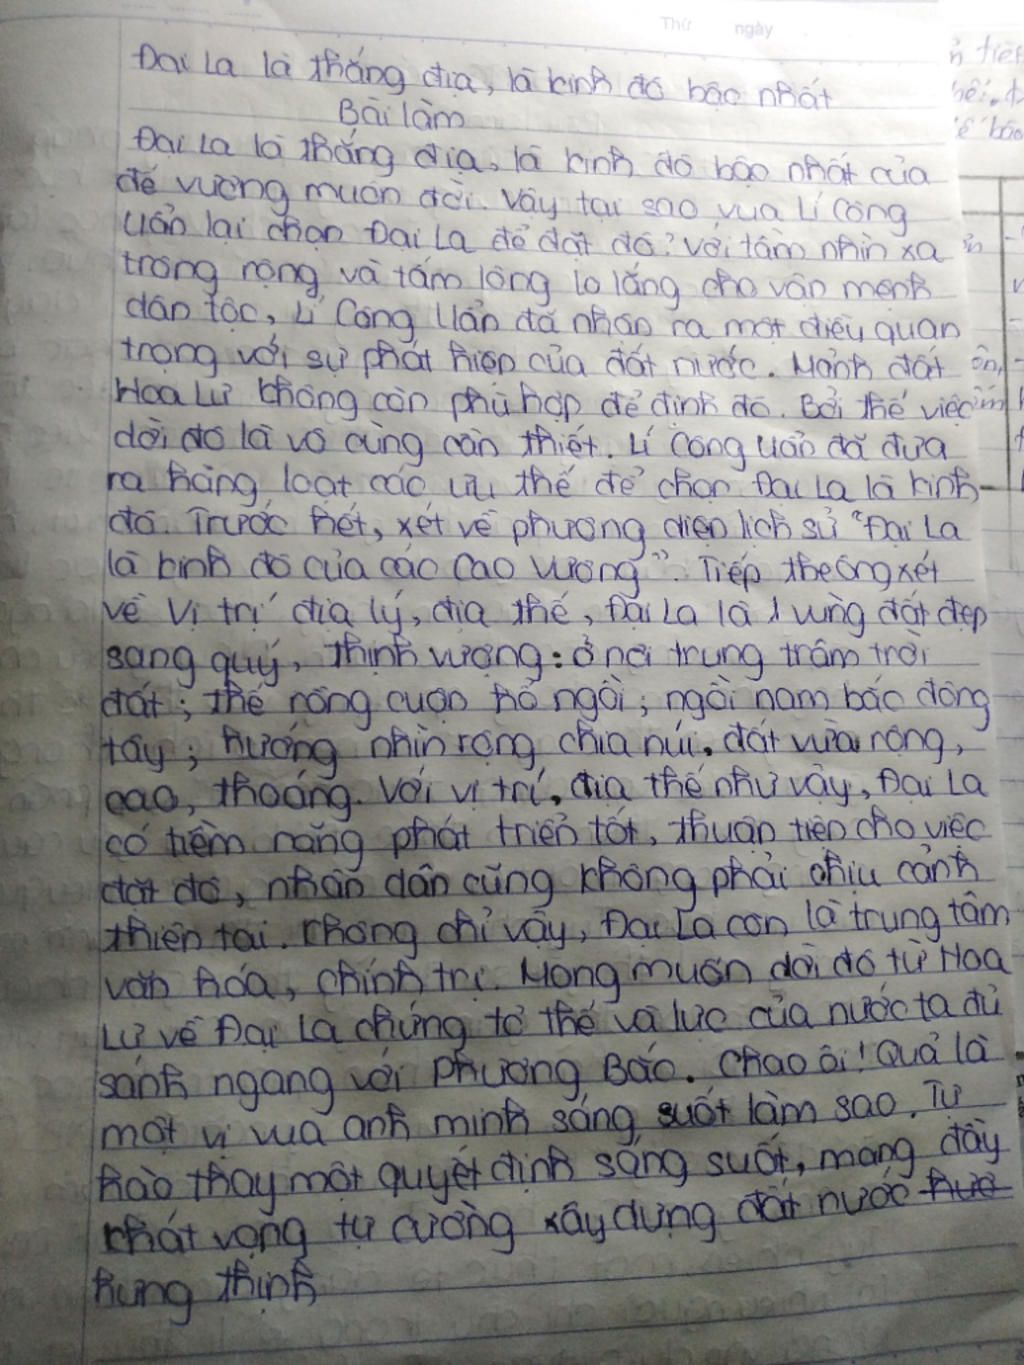 Thứ ngày
Đại La là thắng địa, là kinh đô bậc nhất
Bài làm
Đại La là thắng địa, là kinh đô bậc nhất của
đế vương muôn đời. Vậy tại sao vua Lí Công
Uẩn lại chọn Đại La để đặt đô? Với tầm nhìn xa
trông rộng và tấm lòng lo lắng cho vận mệnh
dân tộc, Lí Công Uẩn đã nhận ra một điều quan
trọng với sự phát hiện của đất nước. Mảnh đất
Hoa Lư không còn phù hợp để định đô. Bởi thế việc
dời đô là vô cùng cần thiết. Lí Công Uẩn đã đưa
ra hàng loạt các ưu thế để chọn Đại La là kinh
đô. Trước hết, xét về phương diện lịch sử "Đại La
là kinh đô của các Cao Vương". Tiếp theo xét
về vị trí địa lý, địa thế, Đại La là 1 vùng đất đẹp
sang quý, thịnh vượng: ở nơi trung trâm trời
đất; thế rồng cuộn hổ ngồi; ngôi nam bắc đông
tây; hướng nhìn rộng chia núi, đất vừa rộng,
cao, thoáng. Với vị trí, địa thế như vậy, Đại La
có tiềm năng phát triển tốt, thuận tiện cho việc
đặt đô, nhân dân cũng không phải chịu cảnh
thiên tai. Không chỉ vậy, Đại La còn là trung tâm
văn hóa, chính trị. Mong muốn dời đô từ Hoa
Lư về Đại La chứng tỏ thế và lực của nước ta đủ
sánh ngang với Phương Bắc. Chao ôi! Quả là
một vị vua anh minh sáng suốt làm sao. Tự
hào thay một quyết định sáng suốt, mang đầy
khát vọng tự cường xây dựng đất nước
hưng thịnh